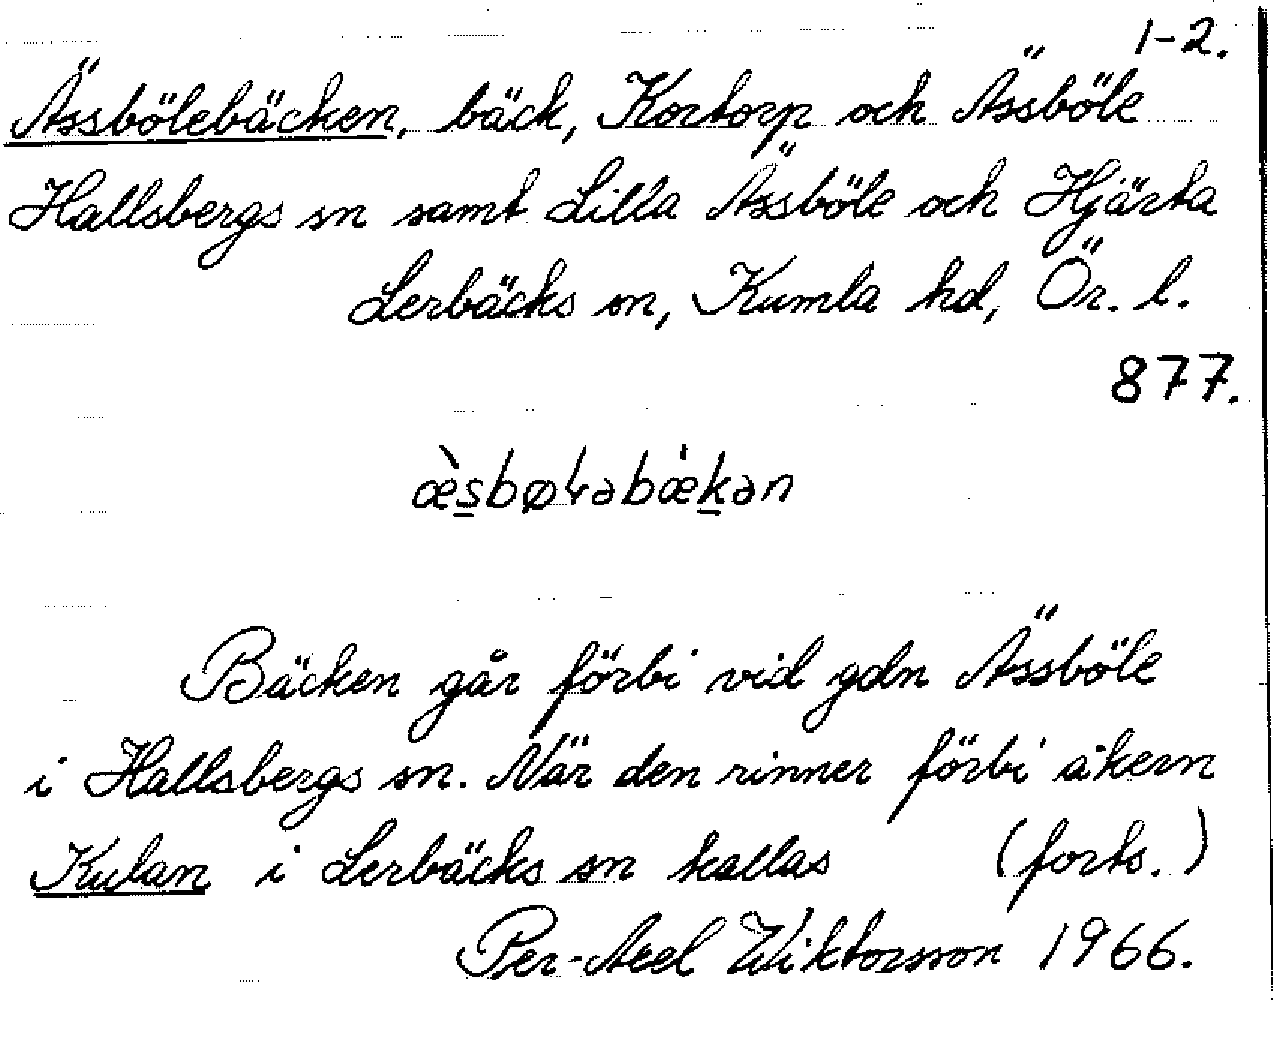 1-2.
Ässbölebäcken, bäck, Kortorp och Ässböle
Hallsbergs sn samt Lilla Ässböle och Hjärta
Lerbäcks sn, Kumla hd, Ör. l.
877.
æ̀s̲bøɫəbæ̍k̲ən
Bäcken går förbi vid gdn Ässböle
i Hallsbergs sn. När den rinner förbi åkern
Kulan i Lerbäcks sn kallas (forts.)
Per-Axel Wiktorsson 1966.